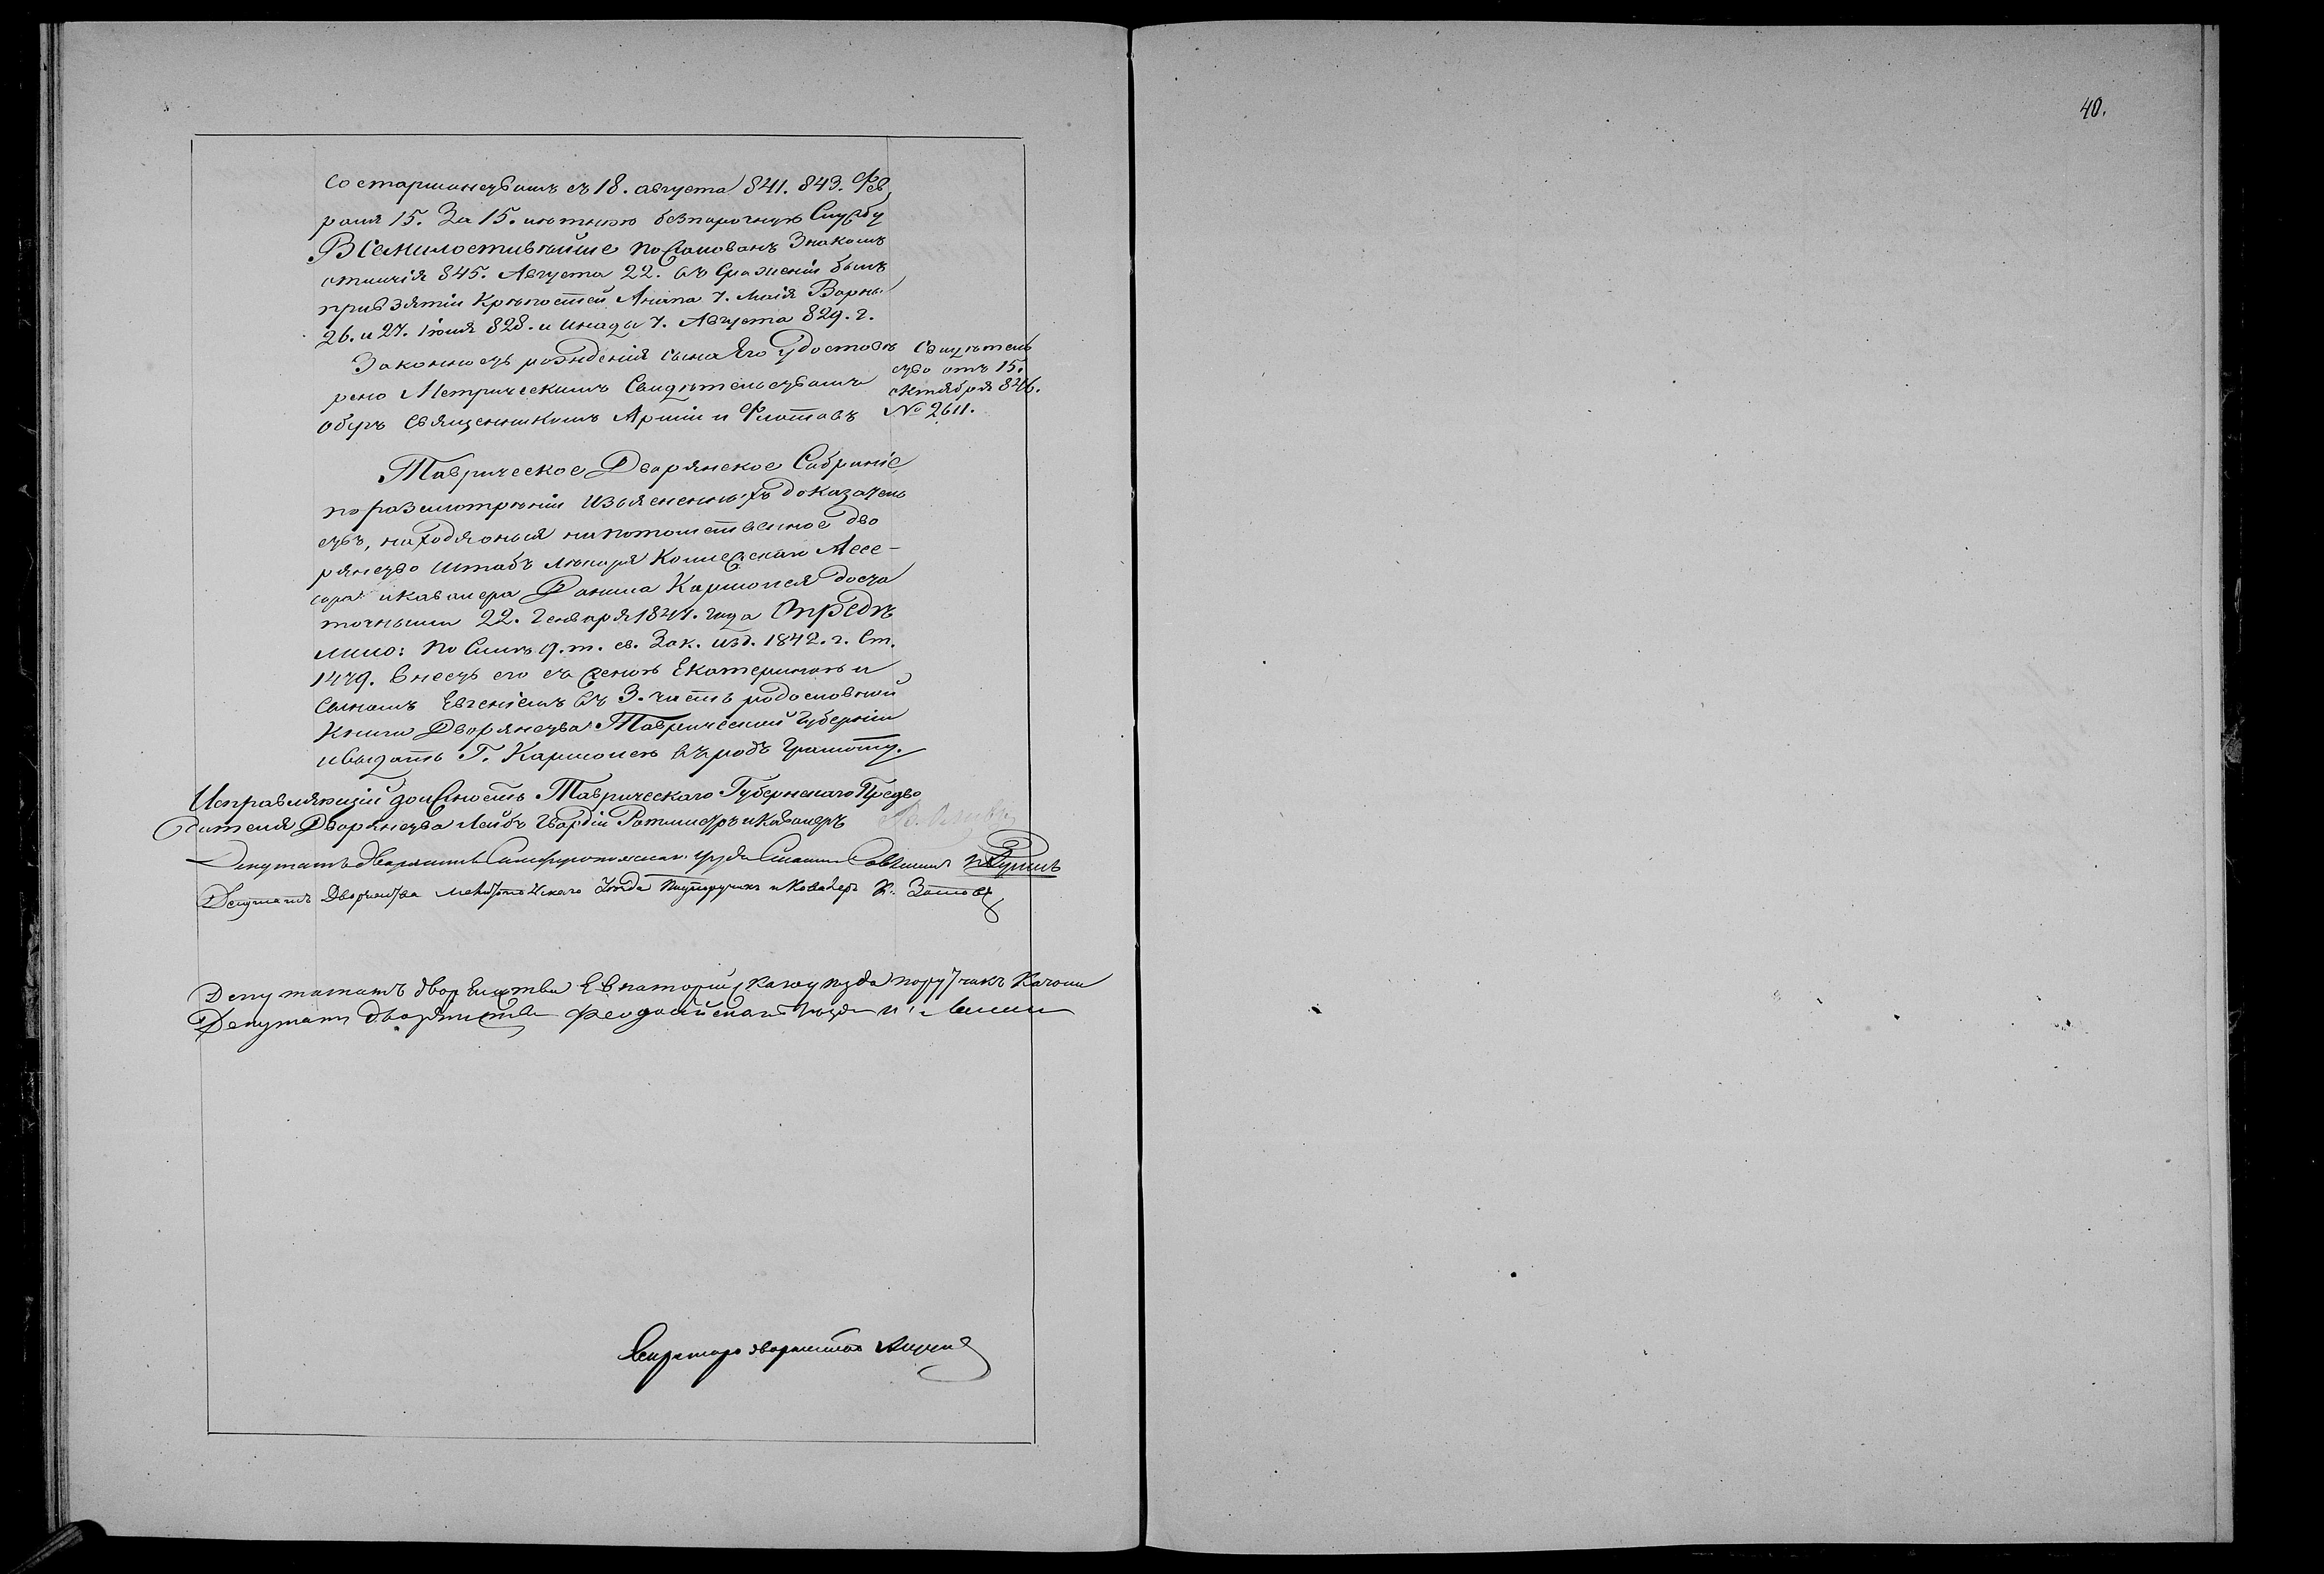 40.
Со старшинствомъ съ 18. августа 841. 843. Фев
раля 15. За 15. лѣтнюю безпорочную Службу
Всемилостивѣйше пожалованъ Знакомъ
отличія 845. Августа 22. въ Сраженіи былъ
при взятіи Крѣпостей Анапа 7. Маія Варны
26. и 27. Іюля 828. и Инады 7. Августа 829. г.
Законность рожденія сына Его Удостовѣ
рено Метрическимъ Свидѣтельствомъ
Оберъ Священникомъ Арміи и Флотовъ
Свидѣтель
ство отъ 15.
октября 846.
№ 2611.
Таврическое Дворянское Собраніе
по разсмотрѣніи Изъясненныхъ доказатель
ствъ, находя оныя на потомственное Дво
рянство Штабъ Лекаря Коллежскаго Ассе-
сора и кавалера Данила Кармолея доста
точными 22. Генваря 1847. года Опредѣ
лило: По Силѣ 9. т. св. Зак. изд. 1842. г. Ст.
1479. Внесть его съ женою Екатериною и
Сыномъ Евгеніемъ въ 3. часть родословной
Книги Дворянства Таврической Губерніи
и выдать Г. Кармолею въ родъ Грамоту.
Исправляющій должность Таврическаго Губернскаго Предво
дителя Дворянства Лейбъ Гвардіи Ротмистръ и Кавалеръ
Депутатъ Дворянства Симферопольскаго уѣзда
Депутатъ Дворянства Мелитопольскаго Уѣзда Подпоручикъ и Кавалеръ К. Зотовъ
Депутатъ дворянства Евпаторійскаго уѣзда поручикъ
Депутатъ дворянства Феодосійскаго Уѣзда
Секретарь дворянства